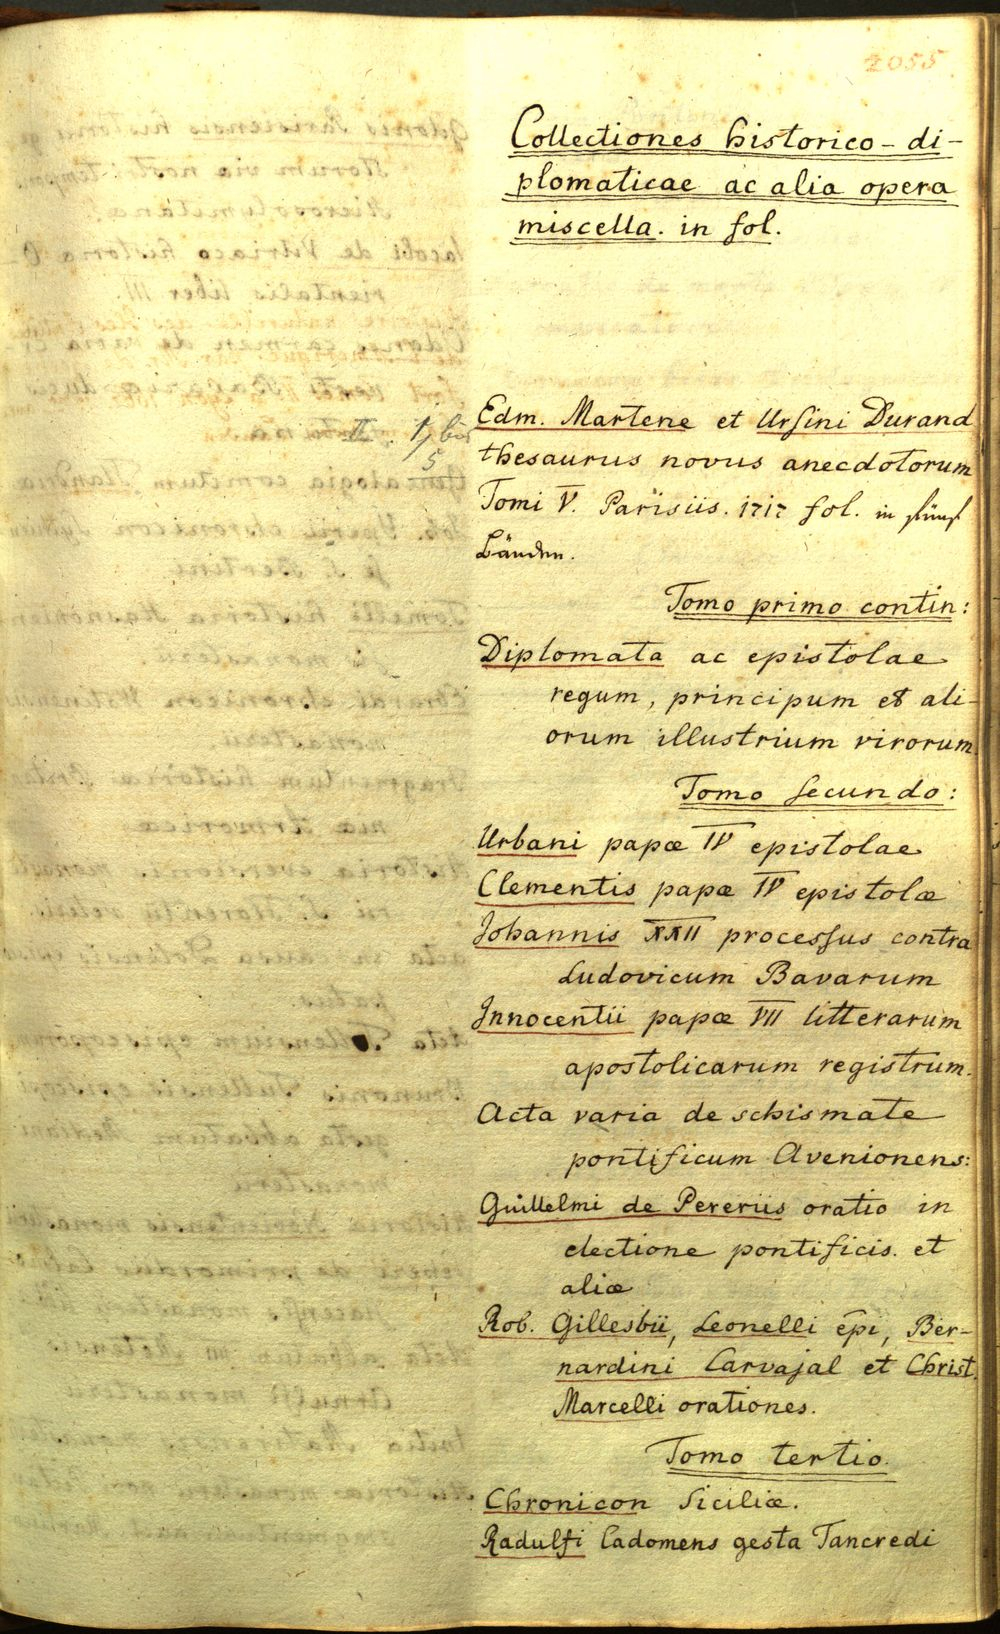 2055
Collectiones historico-di-
plomaticae ac alia opera
miscella. in fol.
II. 1/ bis
5
Edm. Martene et Ursini Durand
thesaurus novus anecdotorum
Tomi V. Parisiis. 1717 fol. in fünf
Bänden.
Tomo primo contin:
Diplomata ac epistolae
regum, principum et ali-
orum illustrium virorum
Tomo secundo:
Urbani papæ IV epistolae
Clementis papæ IV epistolæ
Johannis XXII processus contra
Ludovicum Bavarum
Innocentii papæ VII litterarum
apostolicarum registrum.
Acta varia de schismate
pontificum Avenionens:
Guillelmi de Pereriis oratio in
electione pontificis. et
aliæ
Rob. Gillesbii, Leonelli epi, Ber-
nardini Carvajal et Christ.
Marcelli orationes.
Tomo tertio.
Chronicon Siciliæ.
Radulfi Cadomens gesta Tancredi